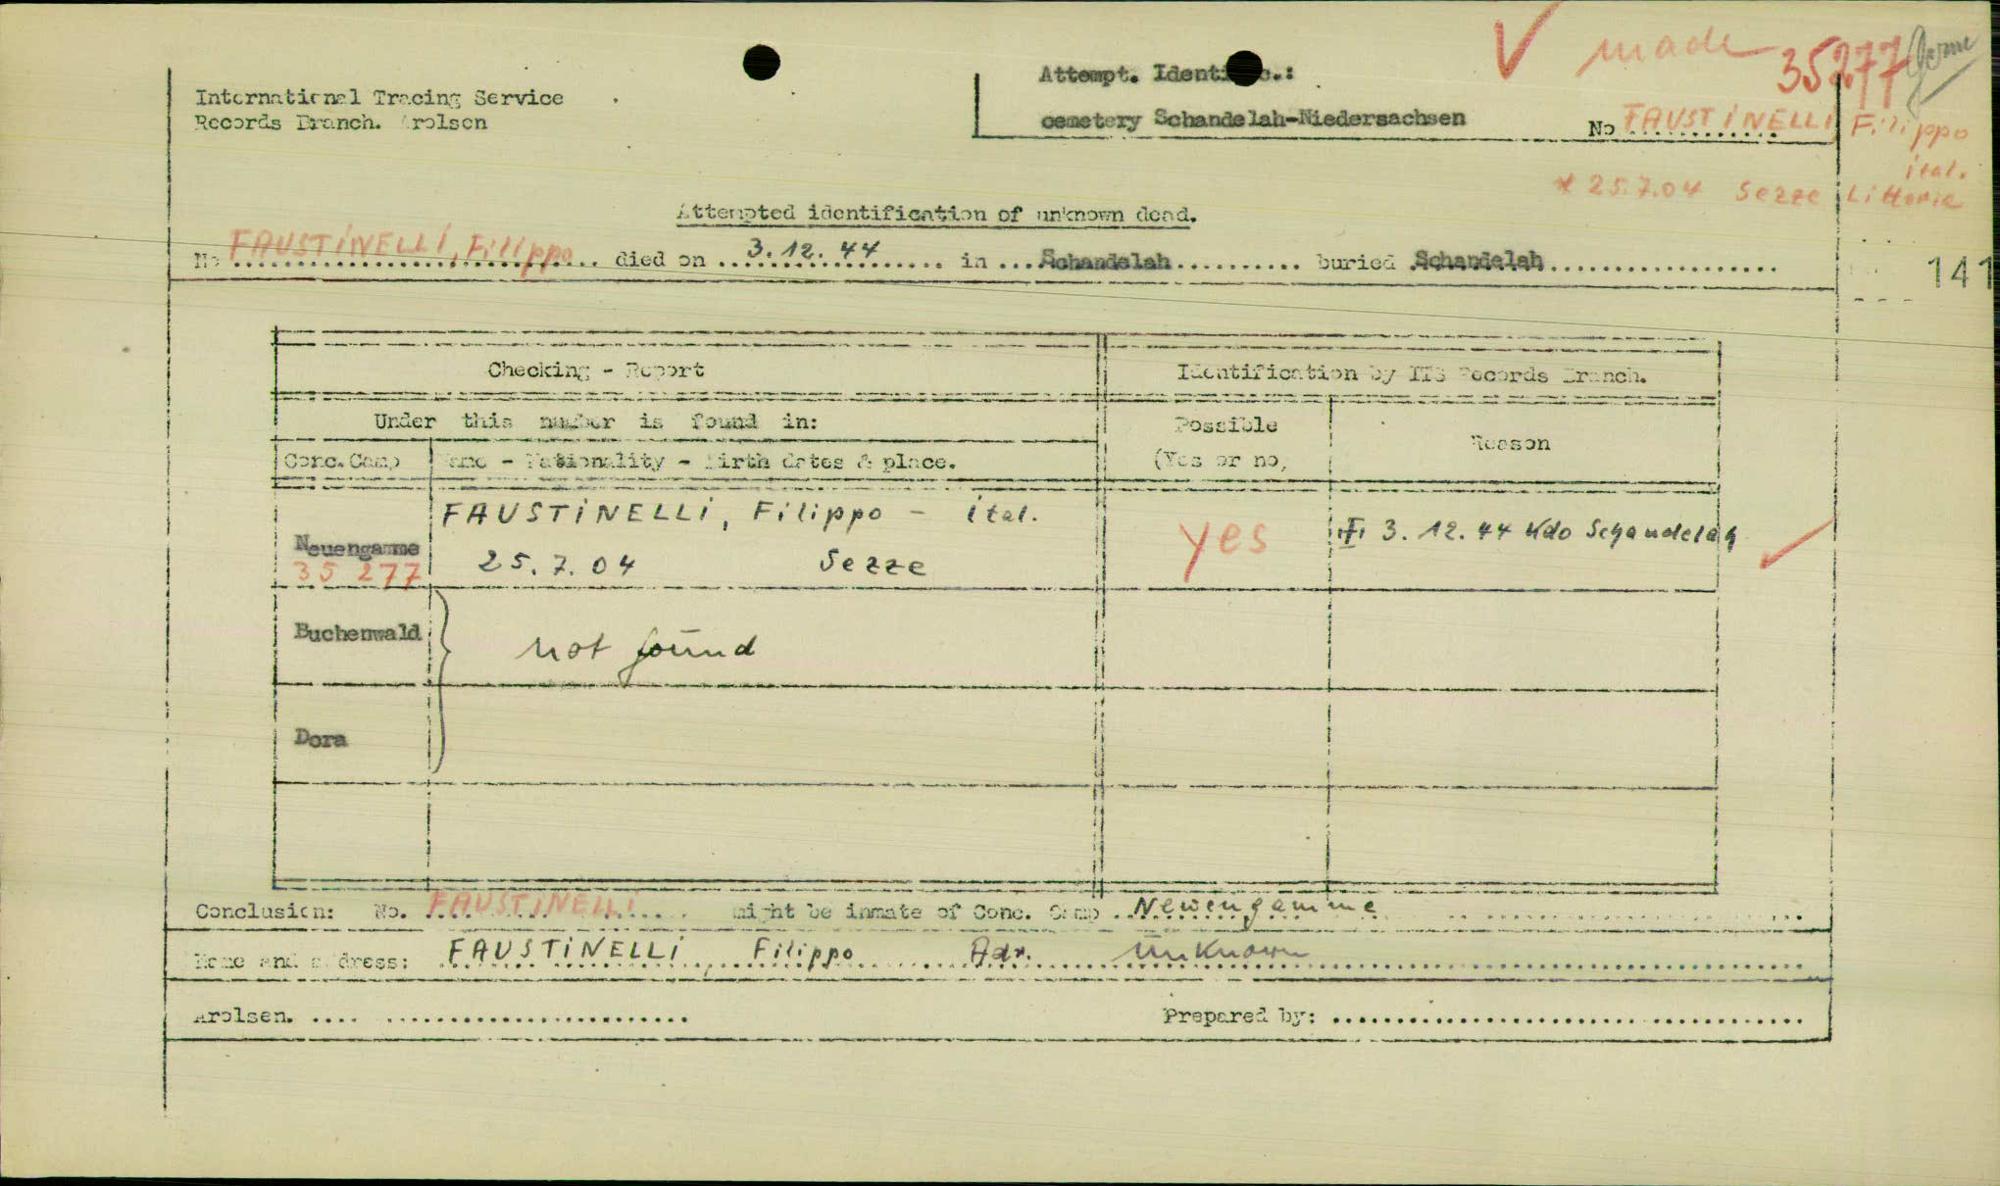 made 35277
International Tracing Service
Records Branch. Arolsen
Attempt. Identific.:
cemetery Schandelah-Niedersachsen
No FAUSTINELLI, Filippo
ital.
* 25.7.04 Sezze Littoria
Attempted identification of unknown dead.
No FAUSTINELLI, Filippo died on 3.12.44 in Schandelah buried Schandelah
141
Checking - Report
Identification by ITS Records Branch.
Under this number is found in:
Possible
(Yes or no,
Reason
Conc. Camp Name - Nationality - Birth dates & place.
FAUSTINELLI, Filippo - ital.
Neuengamme
35 277
25.7.04 Sezze
yes
3.12.44 Kdo Schandelah
Buchenwald
not found
Dora
Conclusion: No. FAUSTINELLI might be inmate of Conc. Camp Neuengamme
Name and address: FAUSTINELLI, Filippo Adr. unknown
Arolsen. .... ........................
Prepared by: ..............................